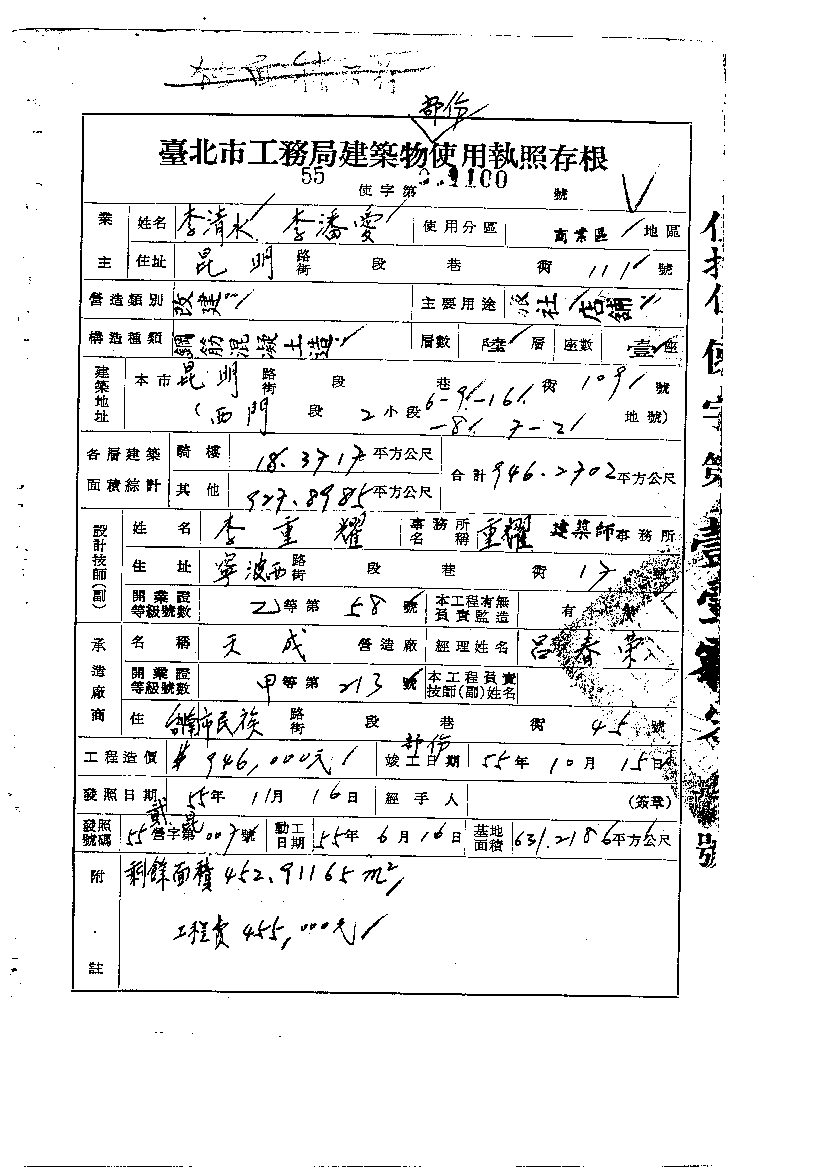 部份
臺北市工務局建築物使用執照存根
55 使字第 1100 號
業主 姓名 李清水 李潘愛 使用分區 商業區 地區
住址 昆明 路街 段 巷 街 111 號
營造類別 改建 主要用途 旅社 店舖
構造種類 鋼筋混凝土造 層數 陸 層 座數 壹 座
建築地址 本市 昆明 路街 段 巷 街 109 號
(西門 段 2 小段 6-9 -16 -8 7-2 地號)
各層建築面積綜計 騎樓 18.3717 平方公尺 合計 946.2702 平方公尺
其他 927.8985 平方公尺
設計技師(副) 姓名 李重耀 事務所名稱 重耀 建築師事務所
住址 寧波西 路街 段 巷 街 17 號
開業證等級號數 乙等第 58 號 本工程有無負責監造 有
承造廠商 名稱 天成 營造廠 經理姓名 呂春榮
開業證等級號數 甲等第 213 號 本工程負責技師(副)姓名
住 台南市民族 路街 段 巷 街 45 號
工程造價 $946,000元 部份 竣工日期 55年10月15日
發照日期 55年11月16日 經手人 (簽章)
發照號碼 55 營字第 007 號 動工日期 55年6月16日 基地面積 631.2186 平方公尺
附註 剩餘面積 452.91165 m²
工程費 455,000元